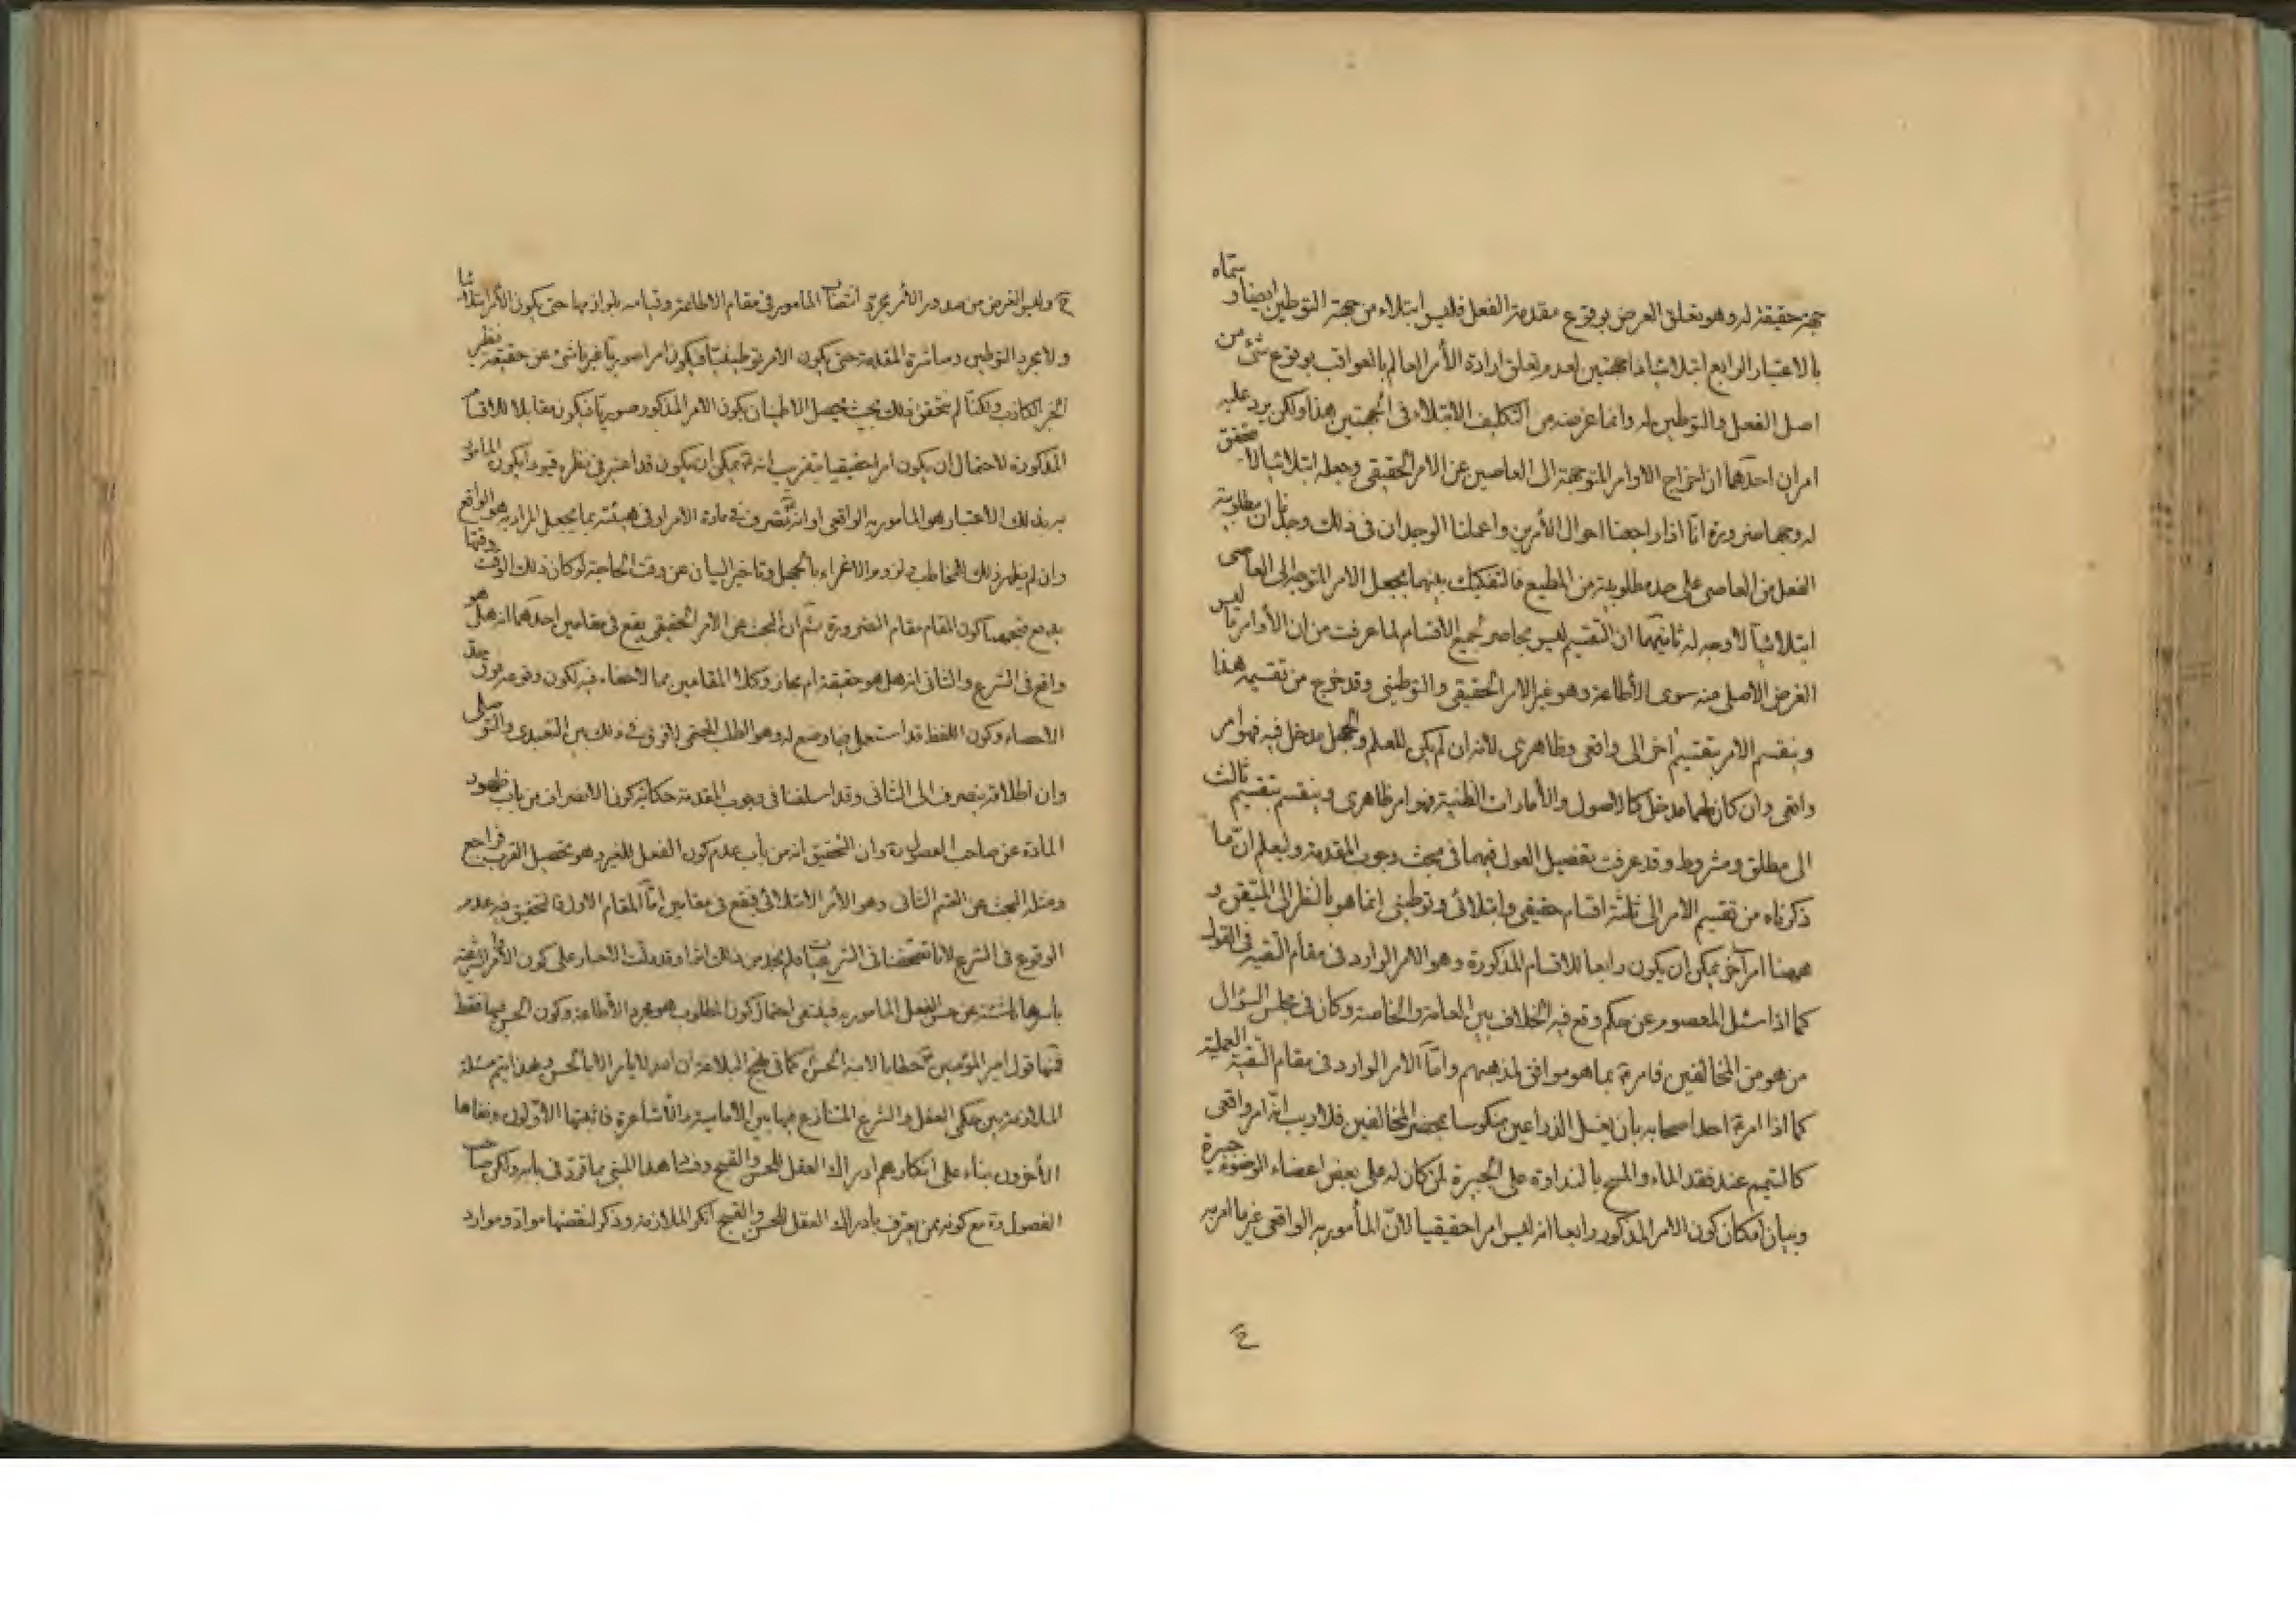 جهة حقيقة له وهو تعلق الغرض بوقوع مقدمة الفعل فليس ابتلاء من جهة التوطين ايضا وسماه
بالاعتبار الرابع ابتلائيا ذا جهتين لعدم تعلق ارادة الأمر العالم بالعواقب بوقوع شئ من
اصل الفعل والتوطين له وانما غرضه من التكليف الابتلاء فى الجهتين هذا ولكن يرد عليه
امران احدهما ان اخراج الاوامر المتوجهة الى العاصين عن الامر الحقيقى وجعله ابتلائيا لا
له وجها ضرورة انا اذا راجعنا احوال الأمرين واعملنا الوجدان فى ذلك وجدنا ان مطلوبية
الفعل من العاصى على حد مطلوبيته من المطيع فالتفكيك بينهما بجعل الامر المتوجه الى العاصى
ابتلائيا لا وجه له ثانيهما ان التقسيم ليس بحاصر لجميع الاقسام لما عرفت من ان الأوامر ما ليس
الغرض الاصلى منه سوى الأطاعة وهو غير الامر الحقيقى والتوطينى وقد خرج من تقسيمه هذا
وينقسم الامر بتقسيم أخر الى واقعى وظاهرى لانه ان لم يكن للعلم والجهل مدخل فيه فهو امر
واقعى وان كان لهما مدخل كالاصول والأمارات الظنية فهو امر ظاهرى وينقسم بتقسيم ثالث
الى مطلق ومشروط وقد عرفت تفصيل القول فيهما فى مبحث وجوب المقدمة وليعلم ان ما
ذكرناه من تقسيم الامر الى ثلثة اقسام حقيقى وابتلائى وتوطينى انما هو بالنظر الى المتيقن و
ههنا امر أخر يمكن ان يكون رابعا للاقسام المذكورة وهو الامر الوارد فى مقام التقية فى القول
كما اذا سئل المعصوم عن حكم وقع فيه الخلاف بين العامة والخاصة وكان فى مجلس السؤال
من هو من المخالفين فامره بما هو موافق لمذهبهم وامّا الامر الوارد فى مقام التقية العملية
كما اذا امر احدا صحابه بان يغسل الذراعين منكوسا بمحضر المخالفين فلا ريب انه امر واقعى
كالتيمم عند فقد الماء والمسح بالنداوة على الجبيرة لمن كان له على بعض اعضاء الوضوء جبيرة
وبيان امكان كون الامر المذكور رابعا انه ليس امرا حقيقيا لانّ المأمور به الواقعى غير ما امر به
ع
ع وليس الغرض من صدور الأمر مجرد انتصاب المأمور فى مقام الاطاعة وقيامه بلوازمها حتى يكون الأمر ابتلائيا
ولا مجرد التوطين ومباشرة المقدمة حتى يكون الأمر توطينيّا فيكون امرا صوريا غير ناشئ عن حقيقة نظير
الخبر الكاذب ولكنا لم نتحقق ذلك بحيث يحصل الاطمينان بكون الامر المذكور صوريا فيكون مقابلا للاقسام
المذكورة لاحتمال ان يكون امرا حقيقيا بتقريب انه يمكن ان يكون قد اعتبر فى نظره قيودا يكون المامور
به بذلك الأعتبار هو المأمور به الواقعى او انه تصرف فى مادة الامر او فى هيئته بما يجعل المراد به هو الواقع
وان لم يظهر ذلك للمخاطب ولزوم الاغراء بالجهل وتاخير البيان عن وقت الحاجة لو كان ذلك الوقت وقتها
يدفع كون المقام مقام الضرورة ثم ان البحث عن الأمر الحقيقى يقع فى مقامين احدهما انه هل هو
واقع فى الشرع والثانى انه هل هو حقيقة ام مجاز وكلا المقامين مما لا خفاء فيه لكون وقوعه فوق حد
الاحصاء وكون اللفظ قد استعمل فيما وضع له وهو الطلب الحتمى لا فرق فى ذلك بين التعبدى والتوصلى
وان اطلاقه ينصرف الى الثانى وقد اسلفنا فى وجوب المقدمة حكاية كون الانصراف من باب ظهور
المادة عن صاحب الفصول ره وان التحقيق انه من باب عدم كون الفعل للغير وهو تحصيل القرب فراجع
ومثله البحث عن القسم الثانى وهو الأمر الابتلائى فيقع فى مقامين امّا المقام الاول فالتحقيق فيه عدم
الوقوع فى الشرع لانا تصفحنا فى الشرعيات فلم نجد من ذلك اثرا وقد دلت الاخبار على كون الأوامر الشرعية
باسرها ناشئة عن حسن الفعل المأمور به فينتفى احتمال كون المطلوب هو مجرد الأطاعة وكون الحسن فيها فقط
فمنها قول امير المؤمنين خطابا لابنه الحسن كما فى نهج البلاغة ان امره لا يأمر الا بالحسن وبهذا يتم مسئلة
الملازمة بين حكمى العقل والشرع المتنازع فيها بين الأمامية والأشاعرة فاثبتها الأولون ونفاها
الأخرون بناء على انكارهم ادراك العقل للحسن والقبح وفساد هذا المبنى مما قرر فى بابه ولكن صاحب
الفصول ره مع كونه ممن يعترف بادراك العقل للحسن والقبح انكر الملازمة وذكر لنقضها مواد وموارد